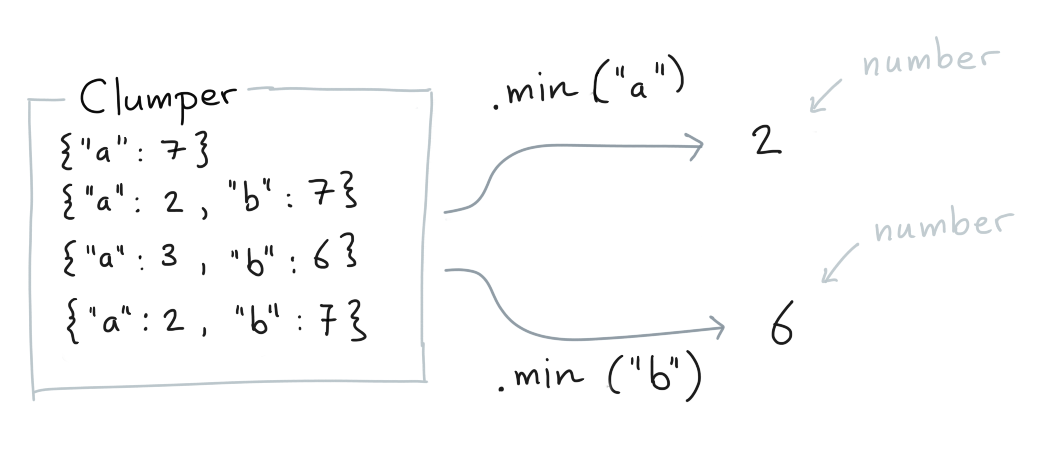 Clumper
{"a": 7}
{"a": 2, "b": 7}
{"a": 3, "b": 6}
{"a": 2, "b": 7}
.min ("a")
2
number
.min ("b")
6
number